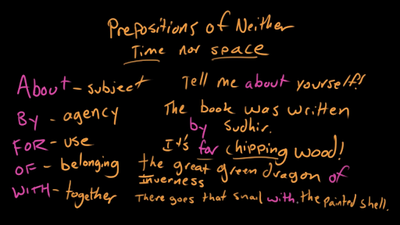 Prepositions of Neither
Time nor space
About - subject
Tell me about yourself!
By - agency
The book was written
by Sudhir.
FOR - use
It's for chipping wood!
OF - belonging
the great green dragon of
Inverness
WITH - together
There goes that snail with the painted shell.